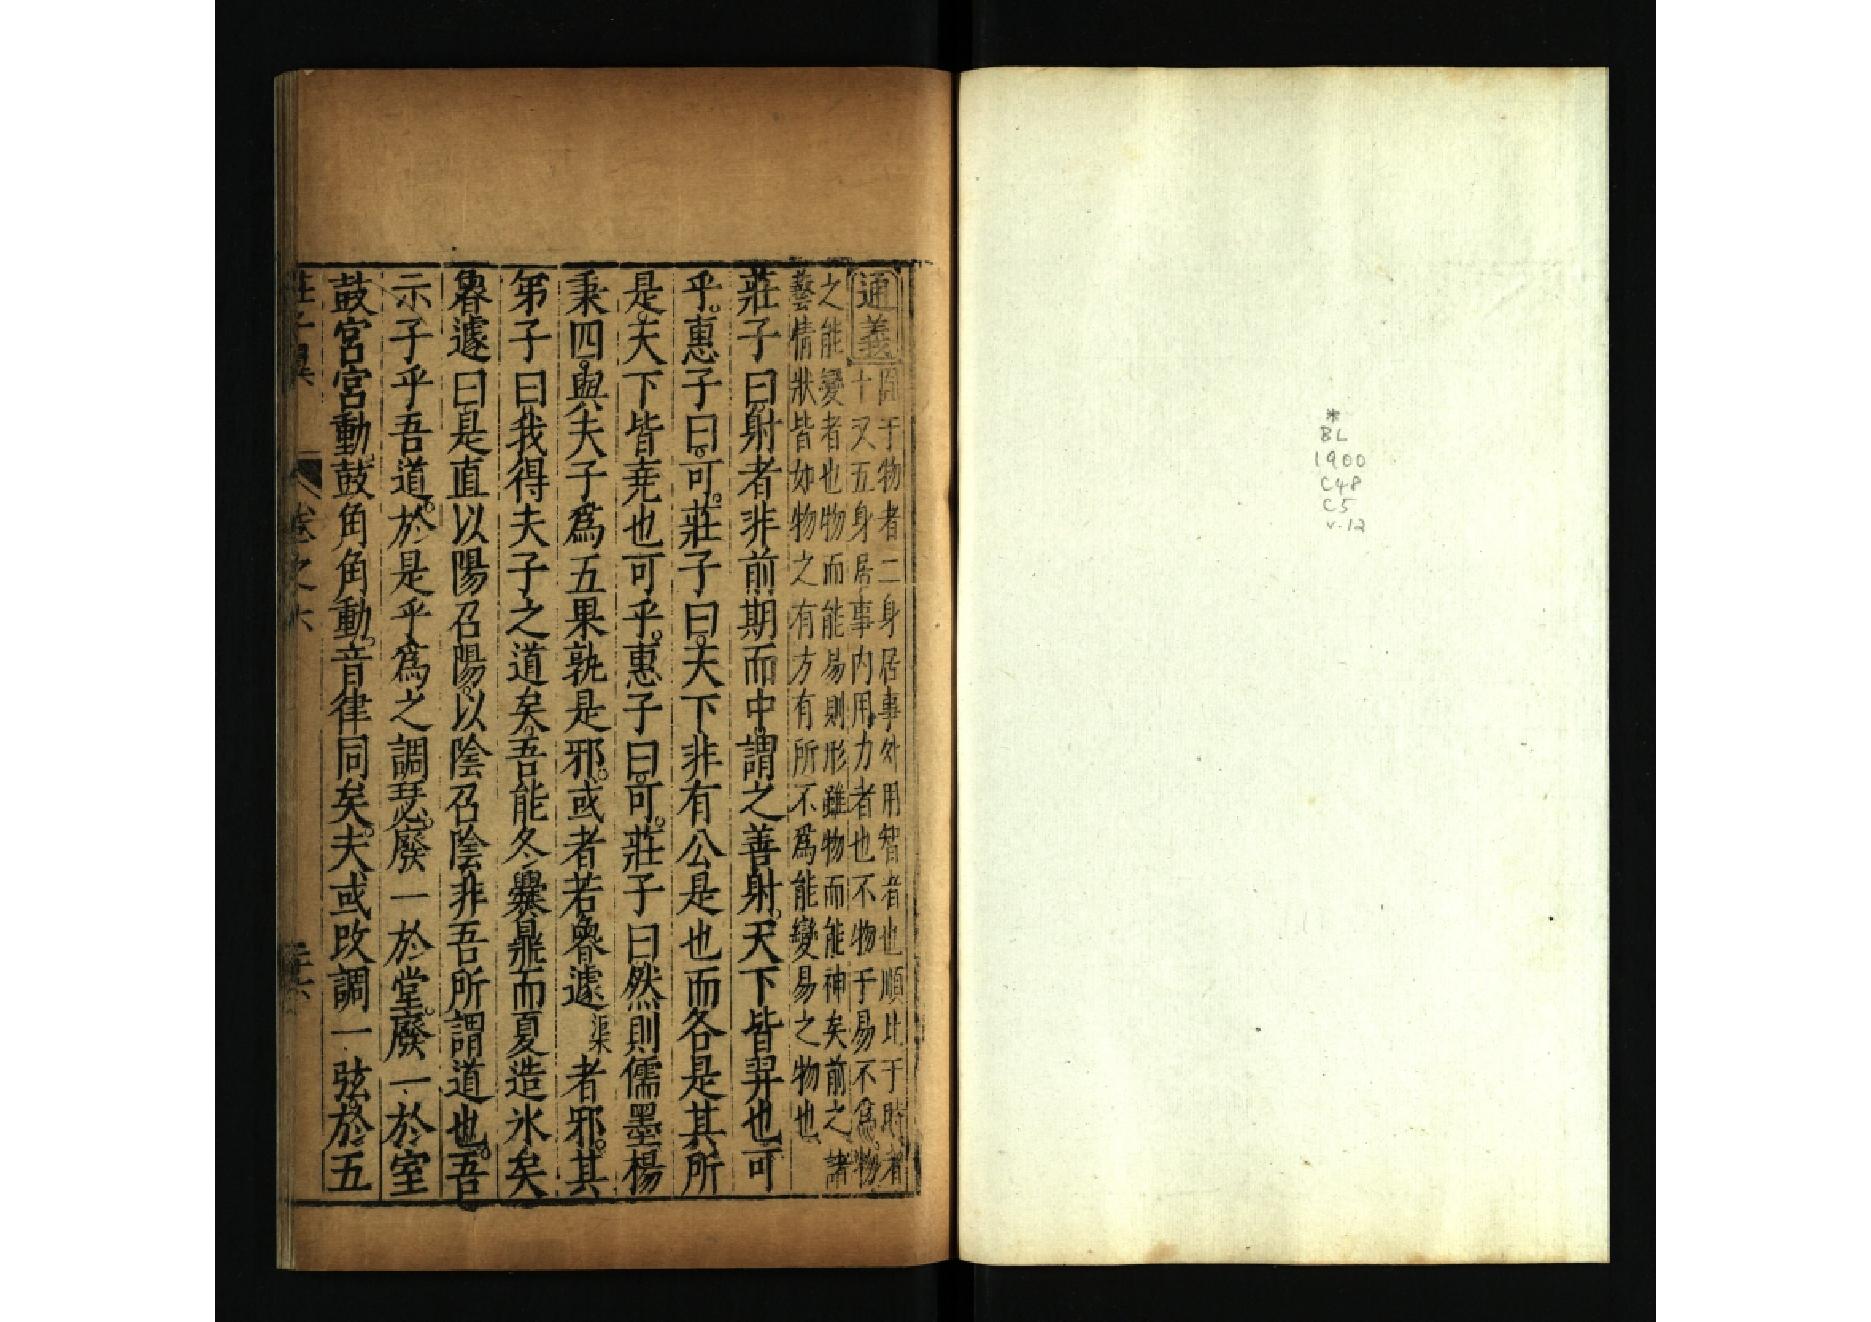 *
BL
1900
C48
C5
v.12
通義
囿于物者二身居事外用智者也順比于時者
十又五身居事内用力者也不物于易不爲物
之能變者也物而能易則形雖物而能神矣前之諸
藝情狀皆如物之有方有所不爲能變易之物也
莊子曰射者非前期而中謂之善射天下皆羿也可
乎惠子曰可莊子曰天下非有公是也而各是其所
是天下皆堯也可乎惠子曰可莊子曰然則儒墨楊
秉四與夫子爲五果孰是邪或者若魯遽渠者邪其
弟子曰我得夫子之道矣吾能冬爨鼎而夏造冰矣
魯遽曰是直以陽召陽以陰召陰非吾所謂道也吾
示子乎吾道於是乎爲之調瑟廢一於堂廢一於室
鼓宮宮動鼓角角動音律同矣夫或改調一弦於五
莊子翼 卷之六